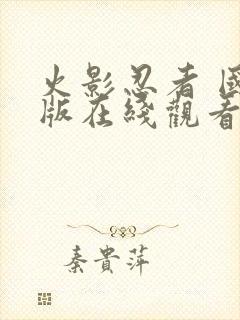 火影忍者 國
版在綫觀看
秦貴萍